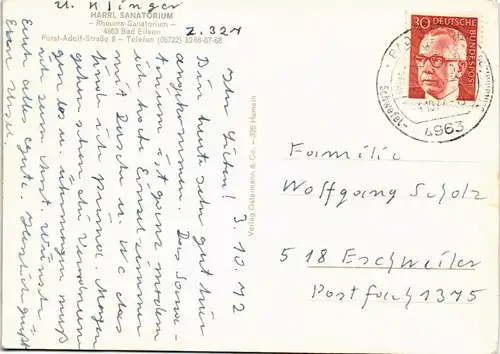 u. Klinger
HARRL SANATORIUM
– Rheuma-Sanatorium –
4963 Bad Eilsen
Z. 324
Fürst-Adolf-Straße 8 – Telefon (05722) 8266-67-68
3.10.72
Ihr Lieben!
Bin heute sehr gut hier
angekommen. Das Sana-
torium ist ganz modern
ich habe Einzelzimmer
mit Dusche u. WC das
finde ich prima. Morgen
gehen schon die Anwendun
gen los u. übermorgen muß
ich zum Arzt. Wünsche
Euch alles gute. Herzlich grüßt
Eure Ursel.
Verlag Ostermann & Co. - 325 Hameln
30 DEUTSCHE
BUNDESPOST
4963
Familie
Wolfgang Scholz
518 Eschweiler
Postfach 1375